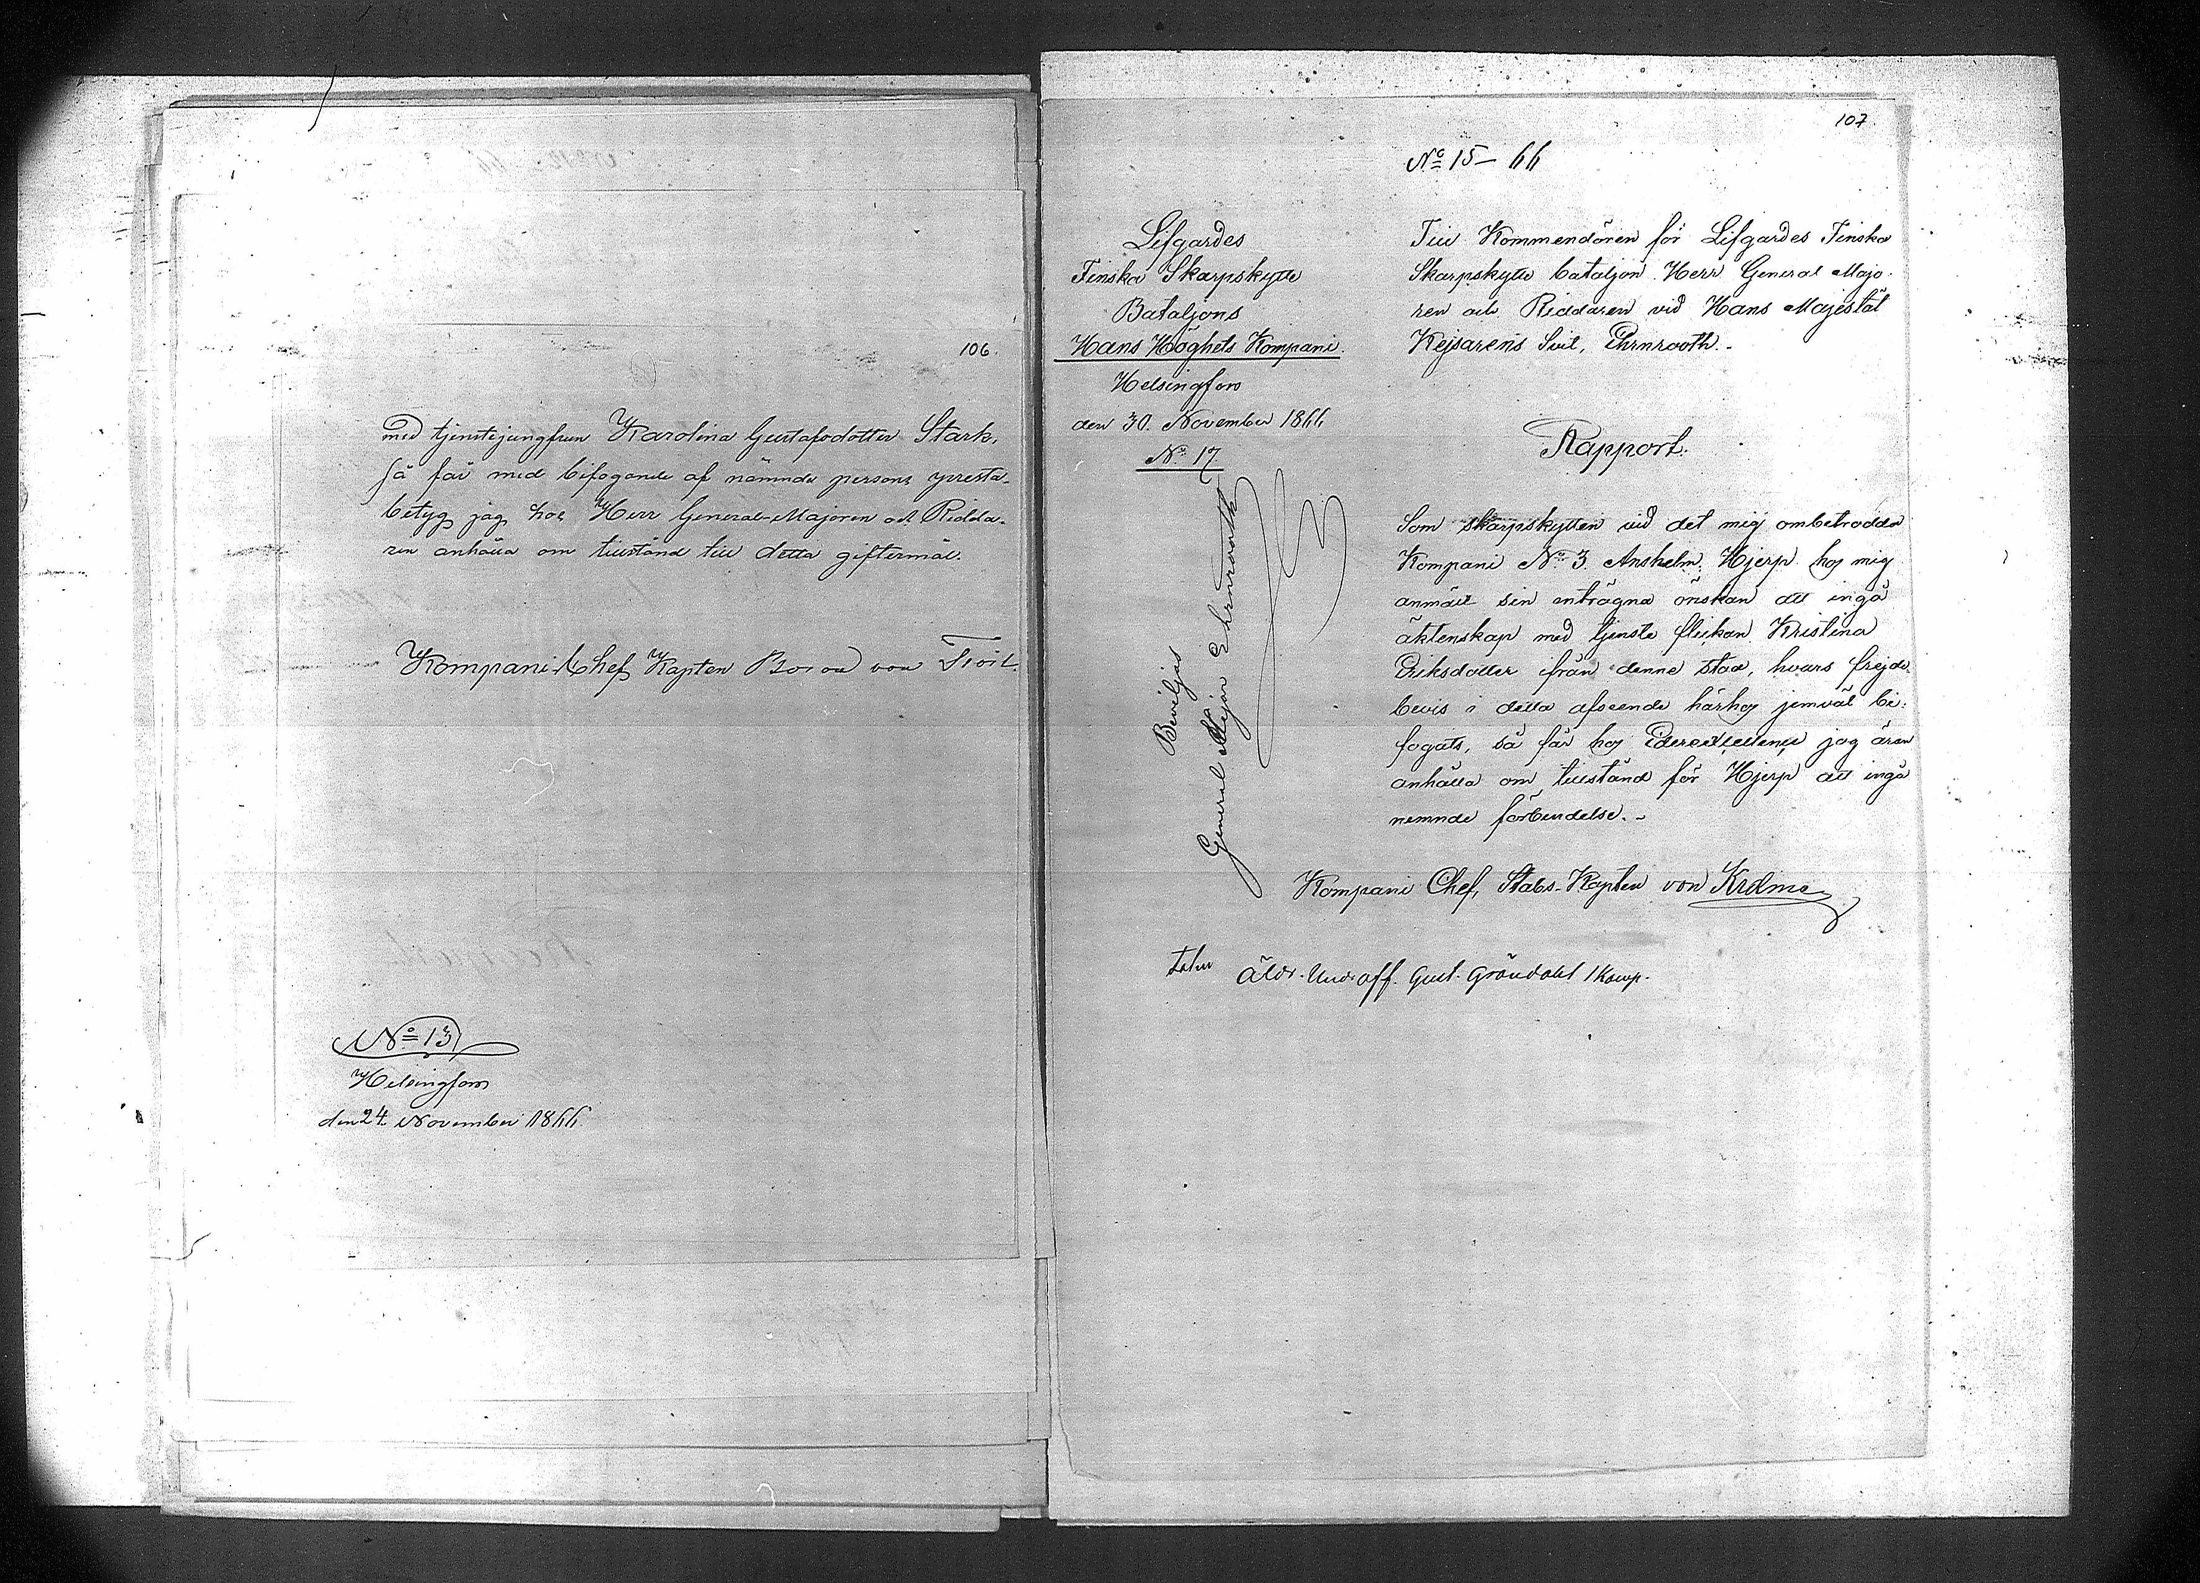 106.
med tjenstejungfrun Karolina Gustafsdotter Stark,
så får med bifogande af nämnde persons presta-
betyg jag hos Herr General-Majoren och Ridda-
ren anhålla om tillstånd till detta giftermål.
Kompani Chef, Kapten Baron von Troil.
No 13
Helsingfors
den 24. November 1866
107.
No 15-66
Lifgardes
Finska Skarpskytte
Bataljons
Hans Höghets Kompani.
Helsingfors
den 30. November 1866
No 17.
Till Kommendören för Lifgardes Finska
Skarpskytte bataljon Herr General Majo-
ren och Riddaren vid Hans Majestät
Kejsarens Svit, Ehrnrooth.-
Rapport.
Som skarpskytten vid det mig ombetrodda
Kompani No 3 Anshelm Hjerp hos mig
anmält sin enträgna önskan att ingå
äktenskap med tjenste flickan Kristina
Eriksdotter från denne stad, hvars frejde-
bevis i detta afseende härhos jemväl bi-
fogats, så får hos Eders Excellence jag äran
anhålla om tillstånd för Hjerp att ingå
nemnde förbindelse.-
Beviljas
General Major Ehrnrooth
Kompani Chef, Stabs-Kapten von
Äldr. Und. off. Gust. Gröndahl 1 Komp.